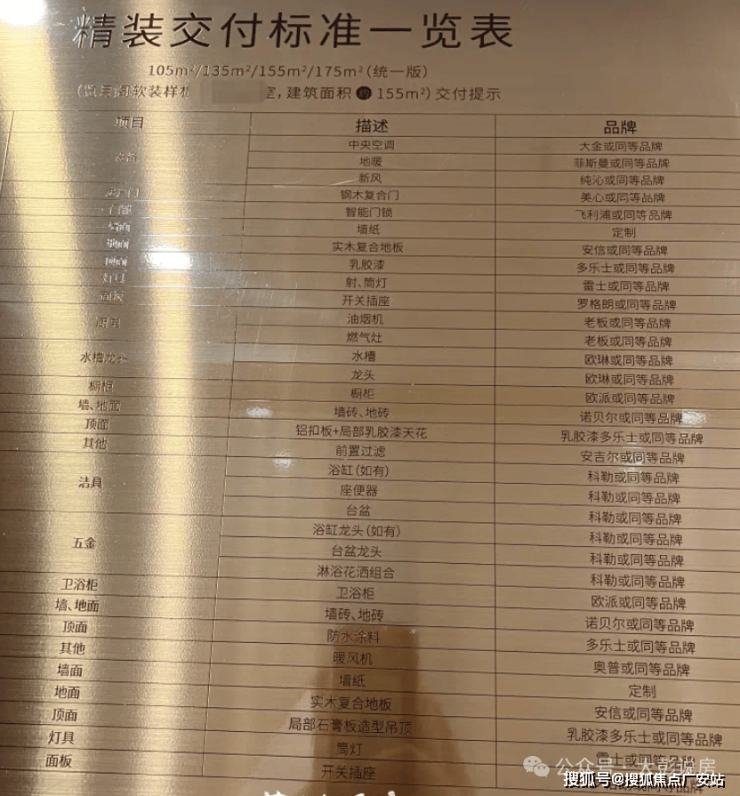 精装交付标准一览表
105m²/135m²/155m²/175m²(统一版)
软装样板 室,建筑面积约155m²)交付提示
项目 描述 品牌
中央空调 大金或同等品牌
地暖 菲斯曼或同等品牌
新风 纯沁或同等品牌
钢木复合门 美心或同等品牌
智能门锁 飞利浦或同等品牌
墙面 墙纸 定制
地面 实木复合地板 安信或同等品牌
顶面 乳胶漆 多乐士或同等品牌
灯具 射、筒灯 雷士或同等品牌
面板 开关插座 罗格朗或同等品牌
厨具 油烟机 老板或同等品牌
燃气灶 老板或同等品牌
水槽龙头 水槽 欧琳或同等品牌
龙头 欧琳或同等品牌
橱柜 橱柜 欧派或同等品牌
墙、地面 墙砖、地砖 诺贝尔或同等品牌
顶面 铝扣板+局部乳胶漆天花 乳胶漆多乐士或同等品牌
其他 前置过滤 安吉尔或同等品牌
洁具 浴缸(如有) 科勒或同等品牌
座便器 科勒或同等品牌
台盆 科勒或同等品牌
五金 浴缸龙头(如有) 科勒或同等品牌
台盆龙头 科勒或同等品牌
淋浴花洒组合 科勒或同等品牌
卫浴柜 卫浴柜 欧派或同等品牌
墙、地面 墙砖、地砖 诺贝尔或同等品牌
顶面 防水涂料 多乐士或同等品牌
其他 暖风机 奥普或同等品牌
墙面 墙纸 定制
地面 实木复合地板 安信或同等品牌
顶面 局部石膏板造型吊顶 乳胶漆多乐士或同等品牌
灯具 筒灯 雷士或同等品牌
面板 开关插座
公众号·大彭说房
搜狐号@搜狐焦点广安站